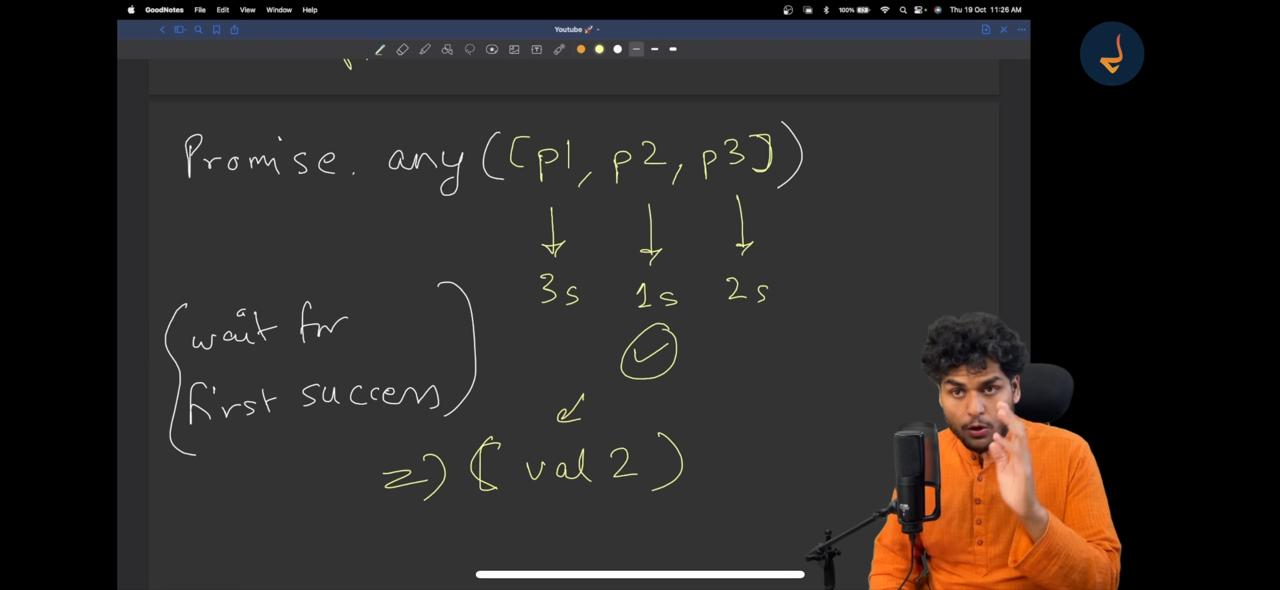 GoodNotes File Edit View Window Help 100% Thu 19 Oct 11:26 AM
Youtube 🚀
Promise. any([p1, p2, p3])
3s 1s 2s
(wait for
first success)
=> ( val 2 )